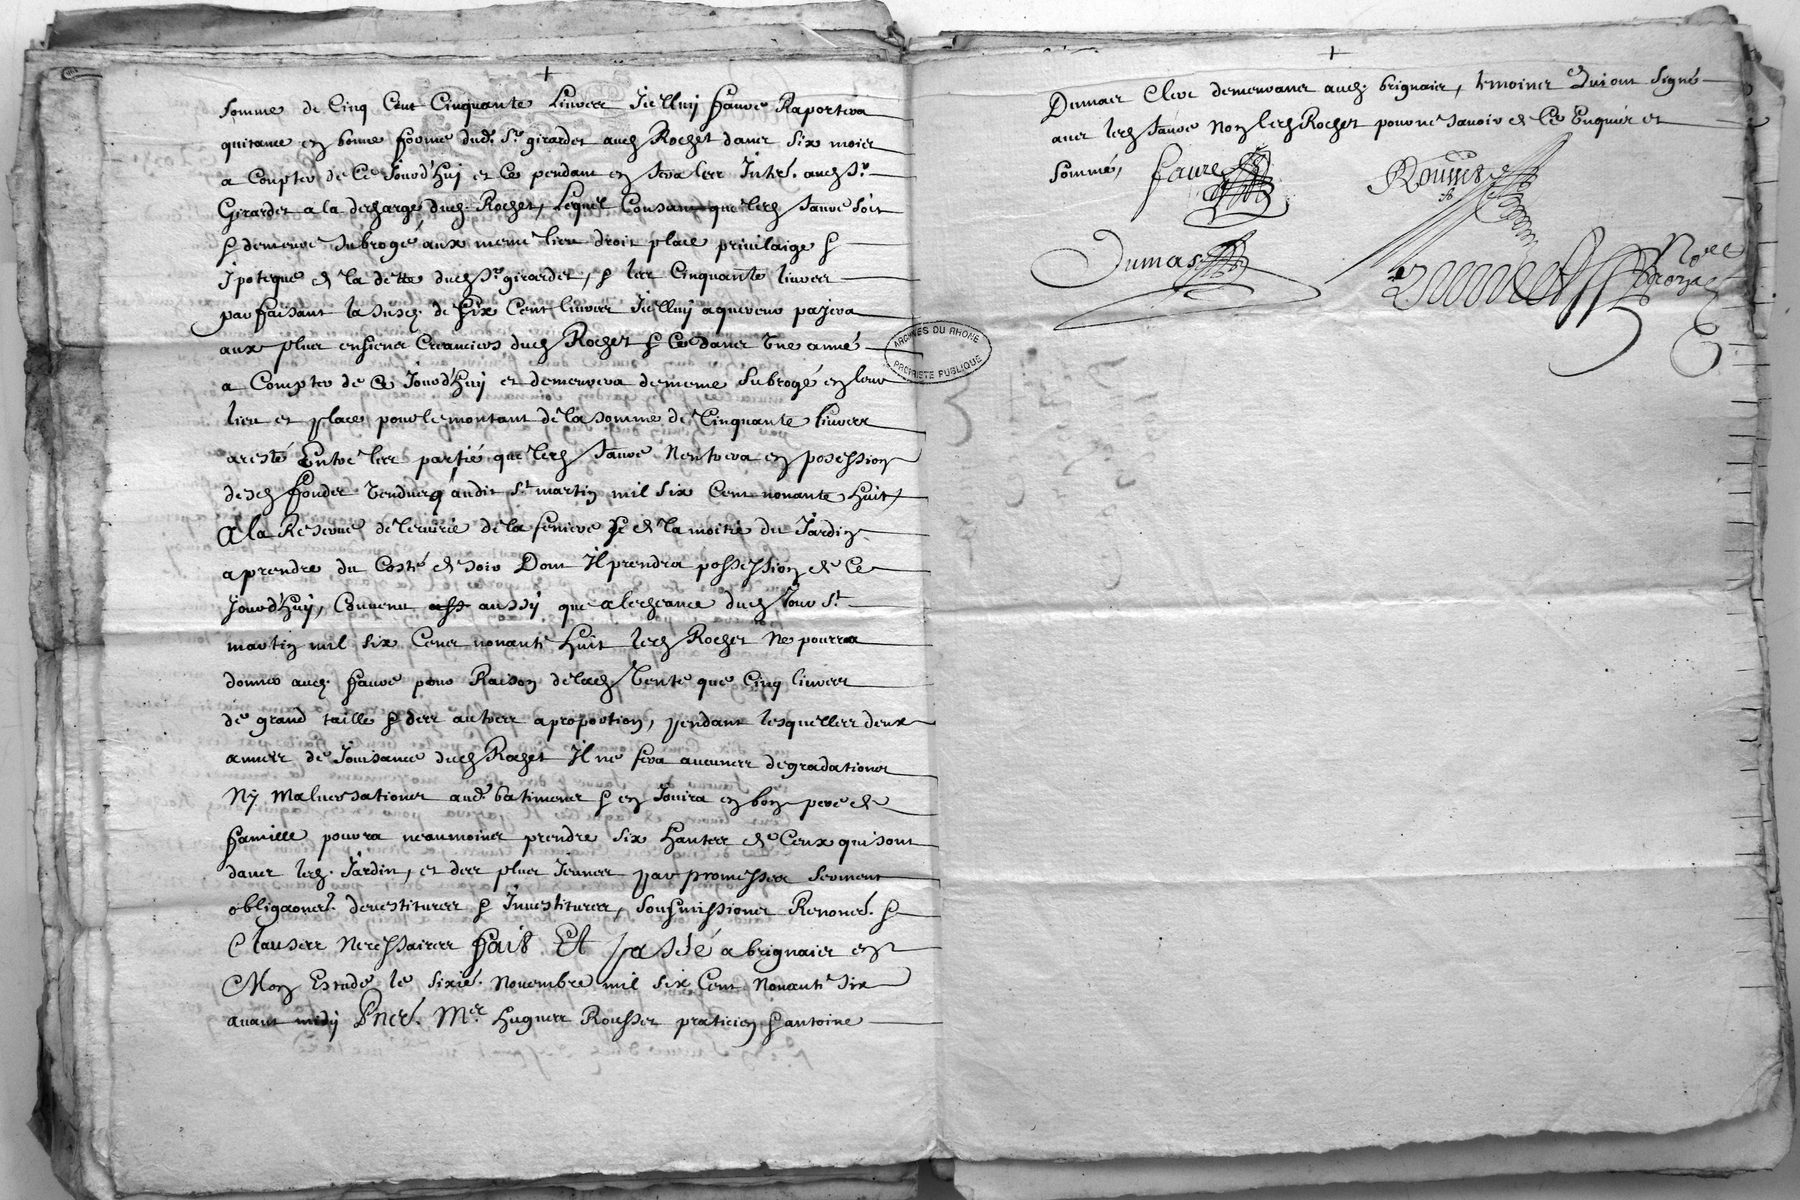 +
somme de Cinq Cent Cinquante Livvers Jcelluy Fauve Raportera
quitance en bonne forme dud. Sr. girardet aud. Rochet dans six mois
a Compter de Ce Jourd'huy et Ce pendant en sera les Intrés. aud. Sr.
Girardet a la decharge dud. Rochet, Lequel Consant que led. fauve soit
& demeure subrogé aux meme lieu droit place privilaige &
Jpoteque de la dette dud. Sr. girardet, & les Cinquante livvers
parfaisant la susd. de Six Cent livvers Jcelluy aquereur payera
aux plus ensiens Creanciers dud. Rochet & Ce dans Une anné
a Compter de Ce Jourd'huy et demeurera de meme subrogé en leur
lieu et place pour le montant de la somme de Cinquante livvers
aresté Entre les partie que led. fauve N'entrera en posession
desd. fonds Vendus q'audit St. martin mil six Cent nonante huit,
A la Reserve de l'ecurie de la feniere & de la moitié du Jardin
a prendre du Costé de soir Dont Il prendra possession de Ce
Jourd'huy, Convenu aussy que a lecheance dud. Jour St.
martin mil six Cent nonante huit led. Rochet Ne pourra
donner aud. fauve pour Raison de lad. Vente que Cinq livvers
de grand taille & des autres a proportion, pendant lesquelles deux
années de Jouisance dud. Rochet Il ne fera aucunes degradations
Ny malversations aud. batiments & en Jouira en bon pere de
famille pourra neanmoins prendre six hantes de Ceux qui sont
dans led. Jardin, et des plus Jeunes par promesses serment
obligaons. devestitures & Investitures, sousmissions Renons. &
Clauses Necessaires Fait Et passé a brignais en
Mon Estude le sixié. Novembre mil six Cent Nonante six
avant midy Pnts. Me. hugues Rousset praticien & antoine
ARCHIVES DU RHONE
PROPRIETE PUBLIQUE
+
Dumas Clerc demeurans aud. brignais, temoins Qui ont signé
avec led. fauve Non led. Rochet pour ne savoir de Ce Enquis et
sommé,
faure
Rousset
Dumas